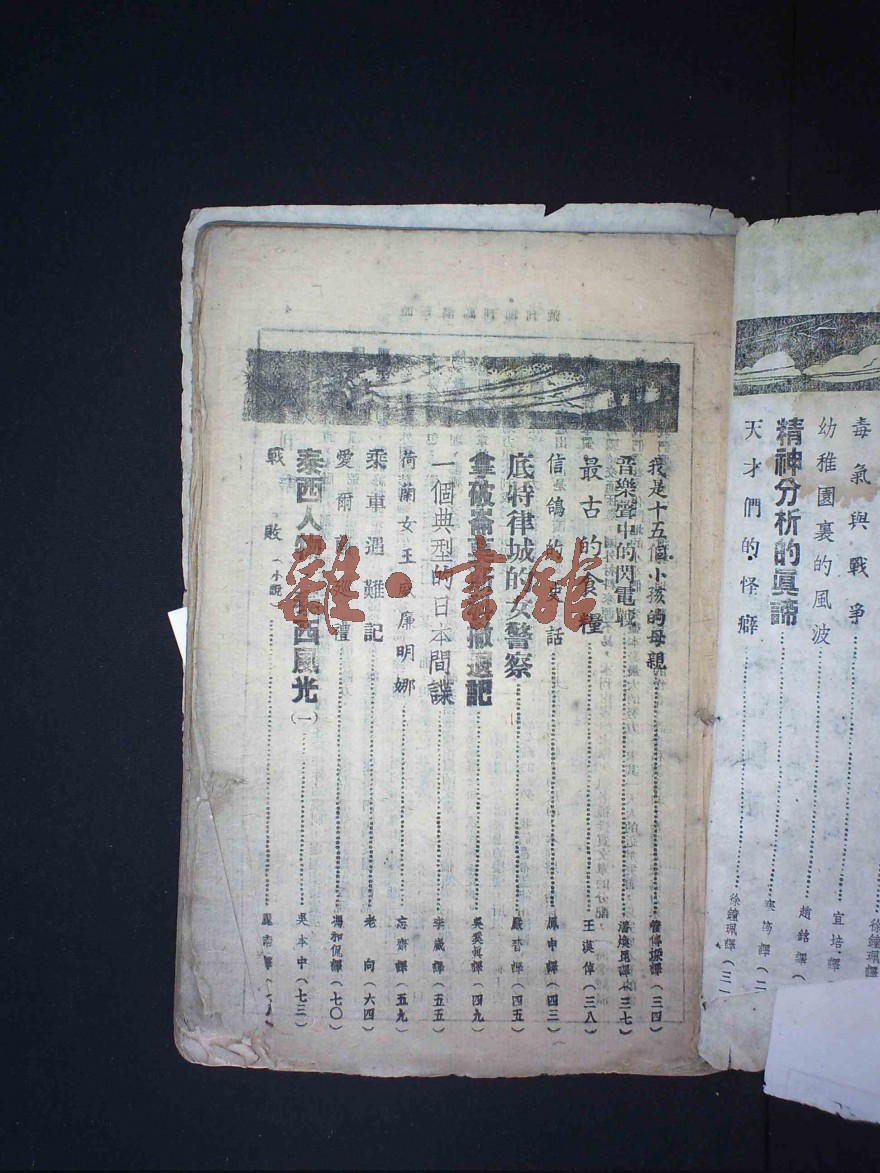 毒氣與戰爭
宜培譯
幼稚園裏的風波
趙銘譯
精神分析的眞諦
天才們的怪癖
徐鐘珮譯(三一
我是十五個小孩的母親
譯(三四)
音樂聲中的閃電戰
譯(三七)
最古的食糧
王漢倬(三八)
信鴿的史話
鳳中譯(四三)
底特律城的女警察
譯(四五)
拿破崙莫斯科撤退記
譯(四九)
一個典型的日本間諜
李威譯(五五)
荷蘭女王威廉明娜
忘齋譯(五九)
乘車遇難記
老向(六四)
愛爾 巡禮
楊和侃譯(七〇)
泰西人物 西風光(一)
吳本中(七三)
戰敗(小說)
雜·書館